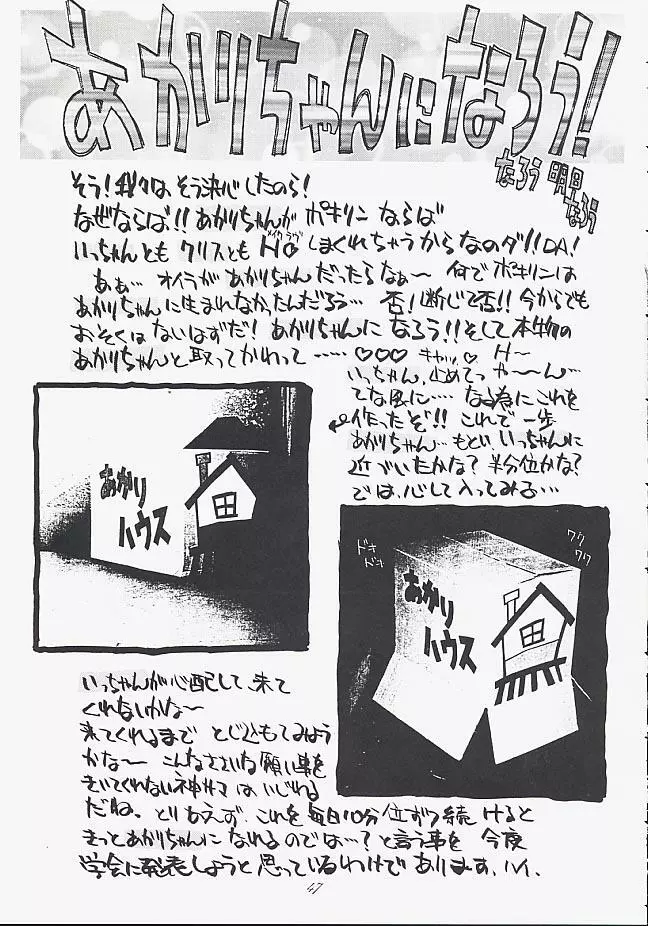 あかりちゃんになろう!
なろう 明日
なろう
そう!我々は、そう決心したのら!
なぜならば!!あかりちゃんが ポキリン ならば
いっちゃんとも クリスとも HO しまくれちゃうからなのダ!!DA!
メイクラヴ
あぁ… オイラが あかりちゃん だったらなぁ〜 何で ポキリンは
あかりちゃんに生まれなかったんだろう… 否!断じて否!!今からでも
おそくは ないはずだ! あかりちゃんに なろう!!そして本物の
あかりちゃんと取ってかわって ‥‥‥ ♡♡♡ キャッ。♡ H〜
いっちゃん、止めてっ や〜ん…
てな風に…。 なる為にこれを
作ったぞ!! これで一歩
あかりちゃん… もとい いっちゃんに
近づいたかな? 半分位かな?
では、心して入ってみる…
あかり
ハウス
ドキ
ドキ
ワク
ワク
あかり
ハウス
いっちゃんが心配して、来て
くれないかな〜
来てくれるまで とじ込もてみよう
かな〜 こんなささいな願い事を
きいてくれない神サマは、いじれる
だね。 とりあえず、これを 毎日10分位ずつ続けると
きっとあかりちゃんに なれるのでは…? と言う事を 今度
学会に発表しようと思っているわけであります。ハイ。
47